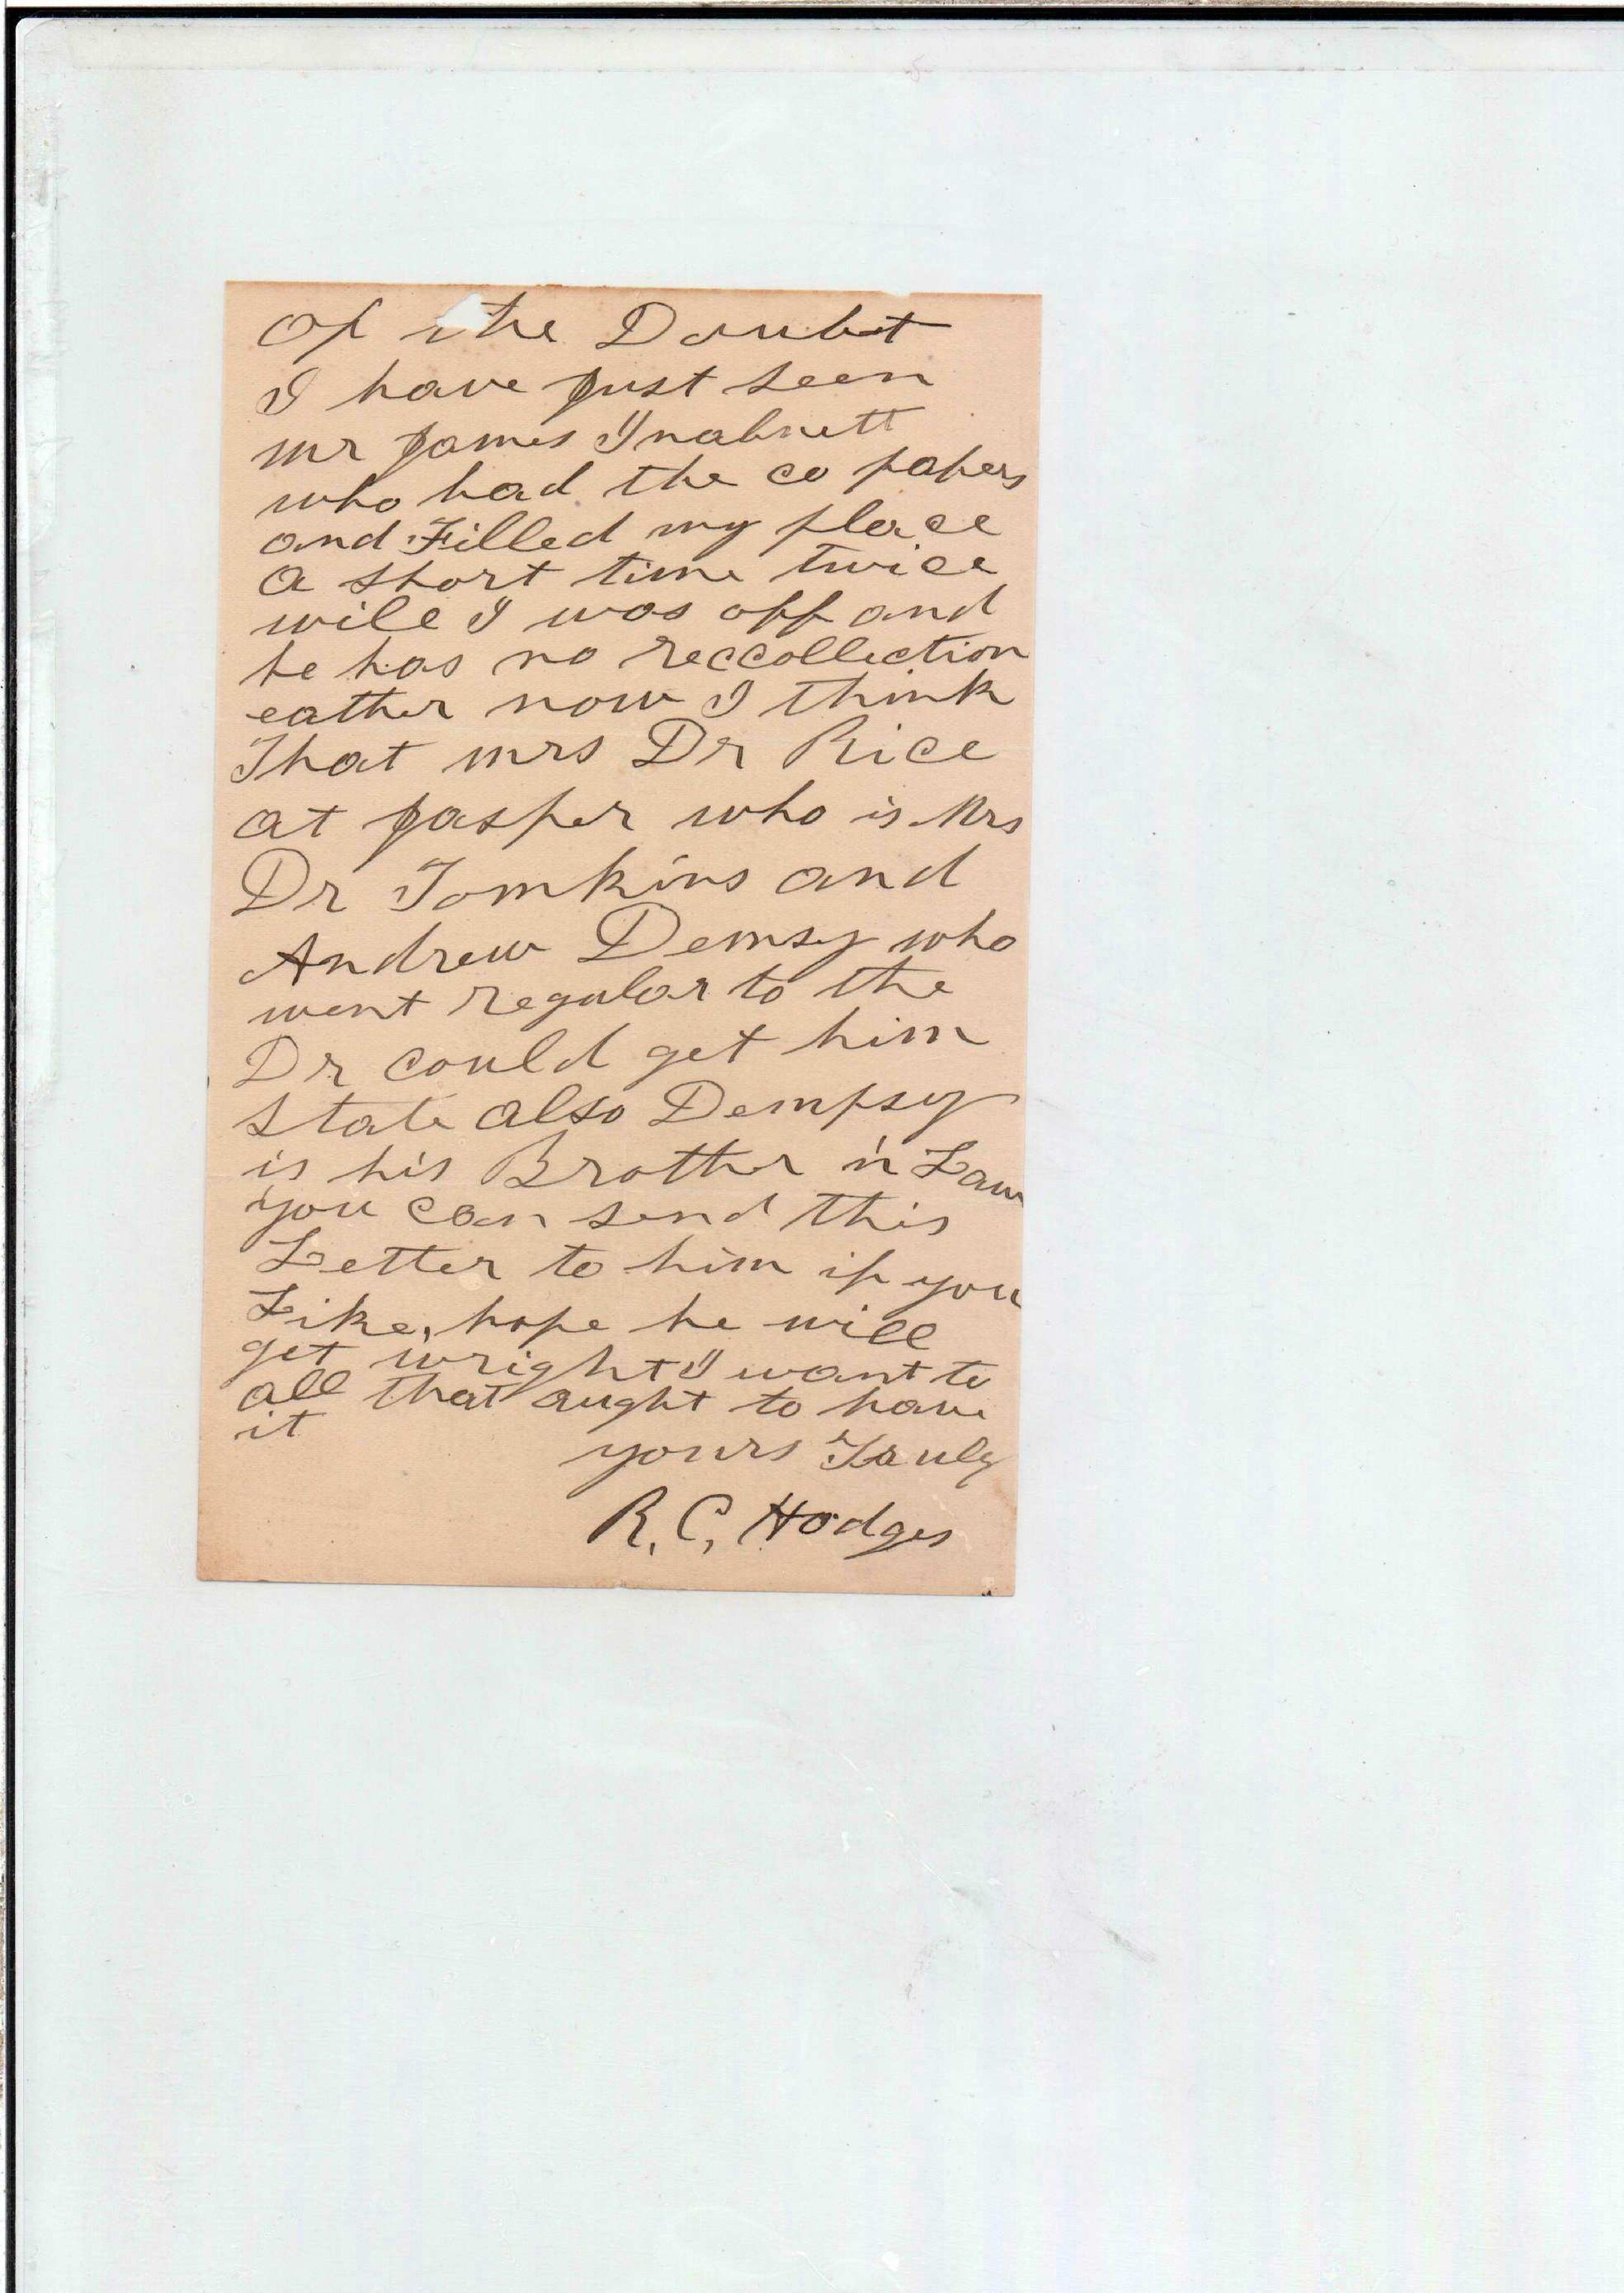 of the Doubt
I have Just seen
mr James Inabnett
who had the co papers
and Filled my place
a short time twice
wile I was off and
he has no reccollection
eather now I think
That mrs Dr Rice
at Jasper who is Mrs
Dr Tomkins and
Andrew Demsy who
went regular to the
Dr could get him
state also Dempsy
is his Brother in Law
you can send this
Letter to him if you
Like, hope he will
get wright I want to
all that aught to have
it
yours Truly
R. C. Hodges